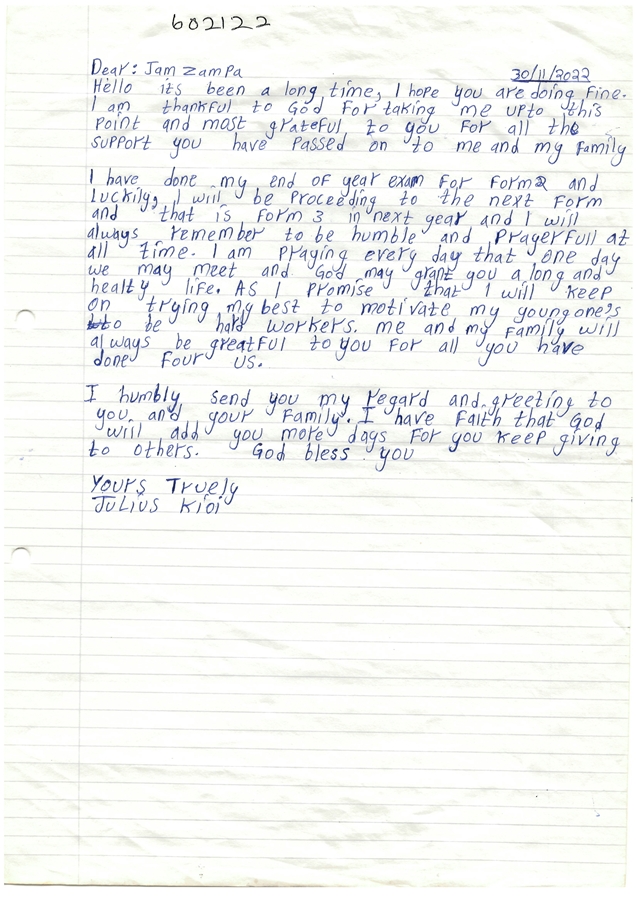 602122
Dear: Jam zampa 30/11/2022
Hello its been a long time, I hope you are doing fine.
I am thankful to God for taking me upto this
point and most grateful to you for all the
support you have passed on to me and my family
I have done my end of year exam for form2 and
luckily, I will be proceeding to the next form
and that is form 3 in next year and I will
always remember to be humble and prayerfull at
all time. I am praying every day that one day
we may meet and God may grant you a long and
healty life. As I promise that I will keep
on trying my best to motivate my young one's
to be hard workers. me and my family will
always be greatful to you for all you have
done four us.
I humbly send you my regard and greeting to
you and your family. I have faith that God
will add you more days for you keep giving
to others. God bless you
Yours Truely
Julius Kioi